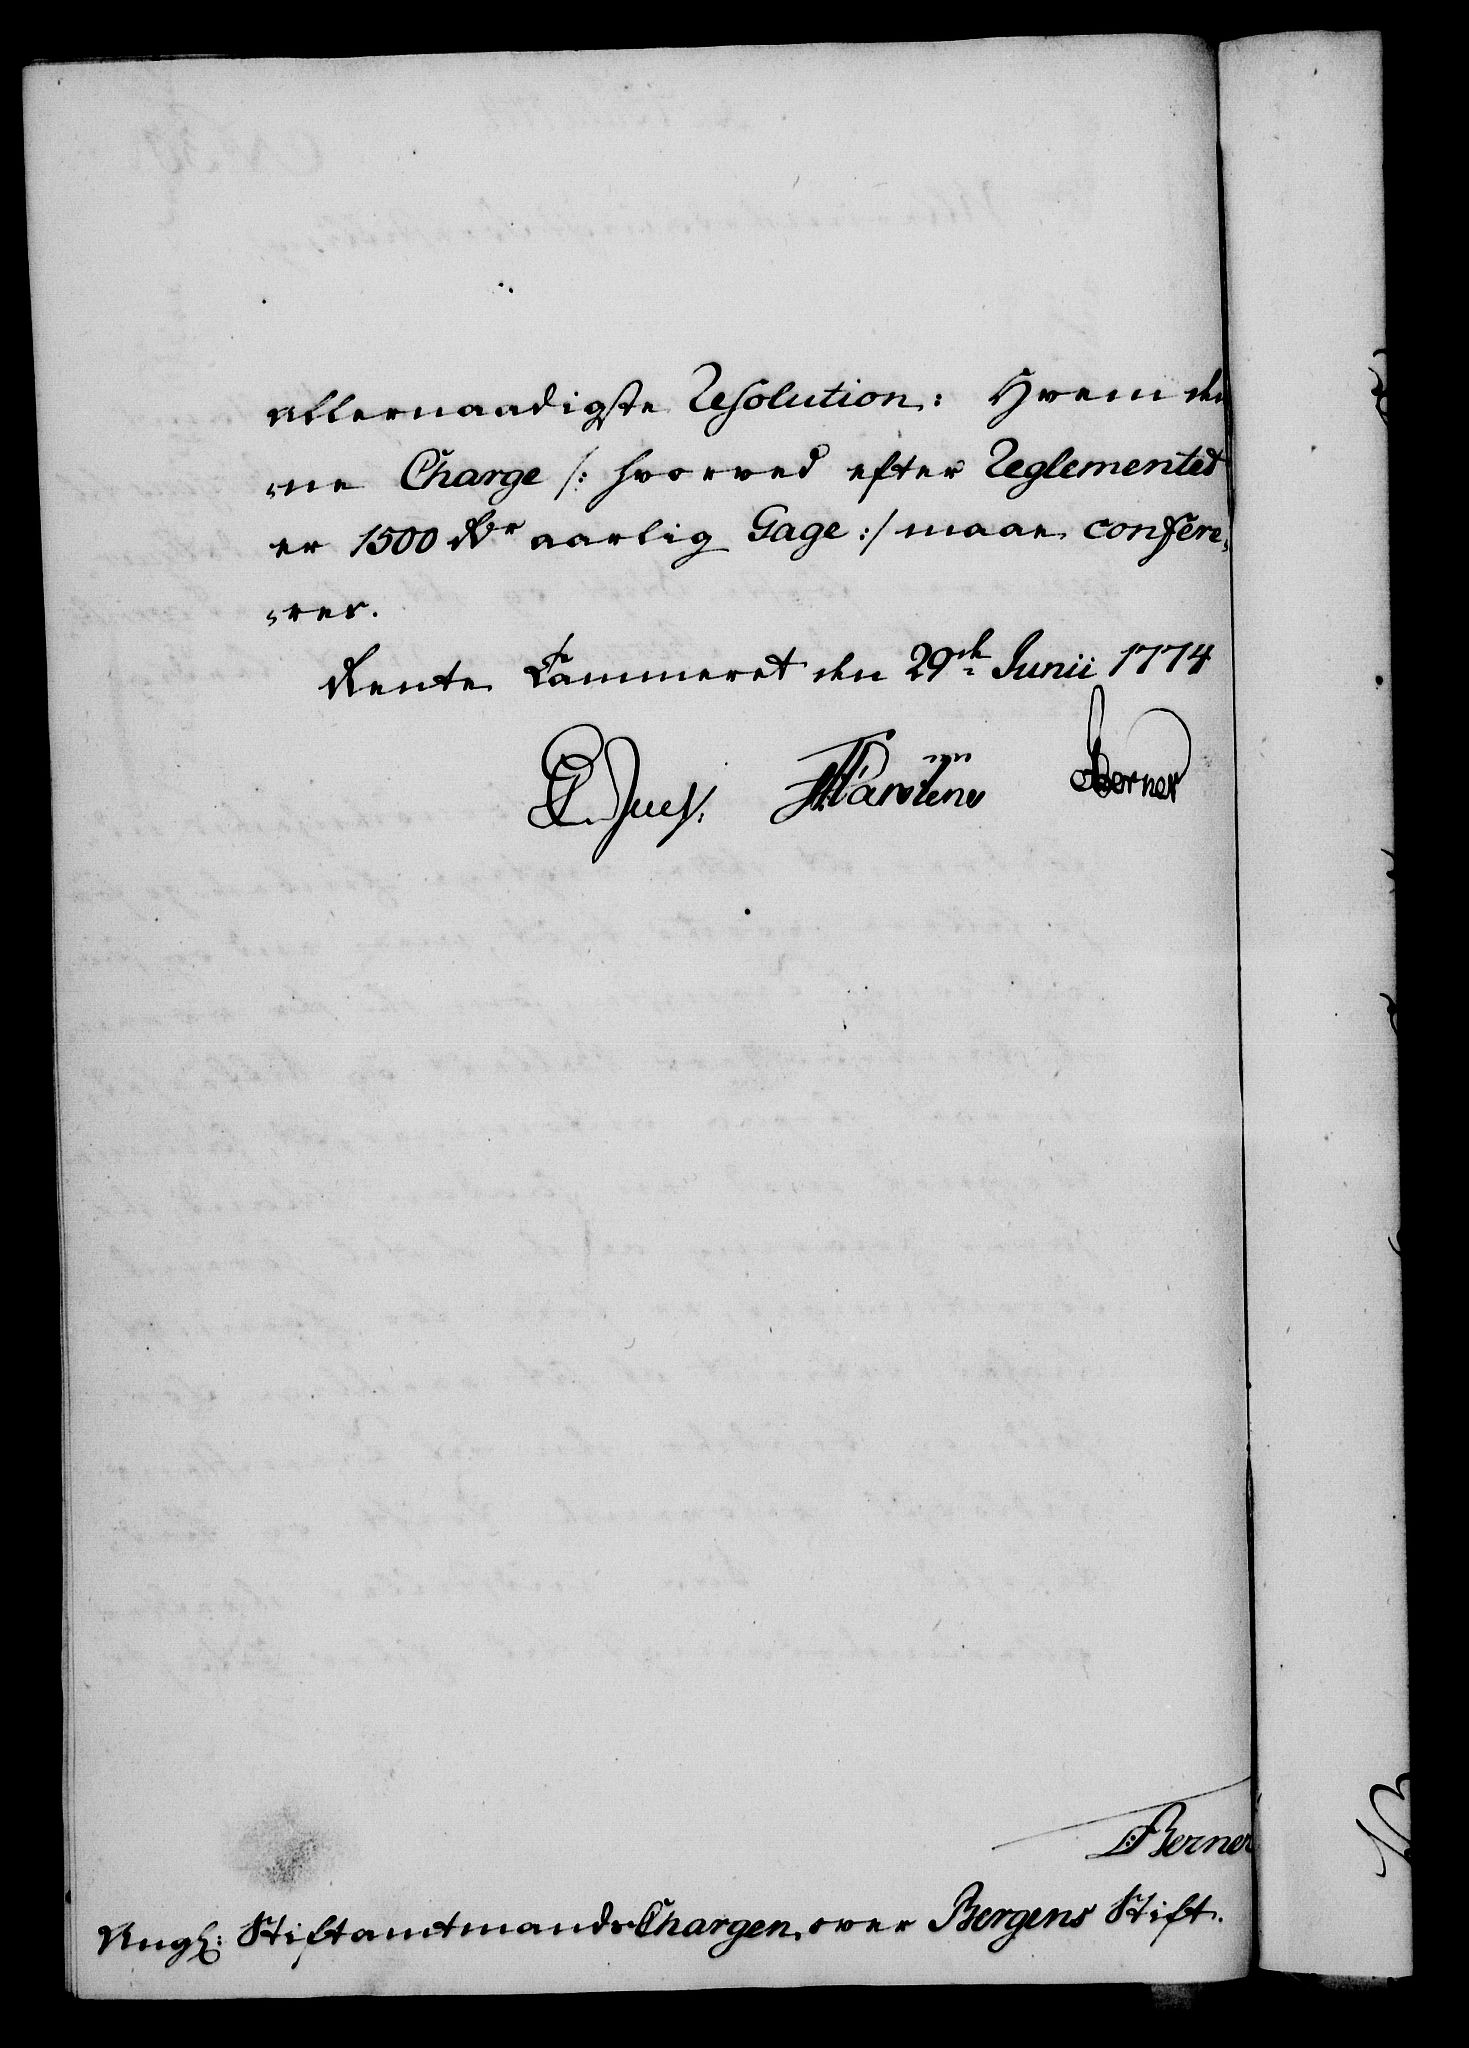 allernaadigste Resolution: Hvem den
„ne Charge /: hvorved efter Reglementet
er 1500 Rdr aarlig Gage :/ maae confere„
„res.
Rente Cammeret den 29de Junii 1774
Juel. Berner
Berner
Ang: Stiftamtmands Chargen over Bergens Stift.